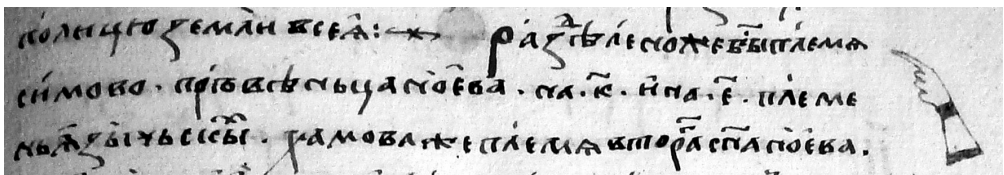 по лицю земли всеѧ: раздѣлено же бы́ племѧ
симово. пръвѣньца ноева. на. к҃. и на. е҃. племе
ньꙗзычьскы. хамова же племѧ вторго сна ноева.